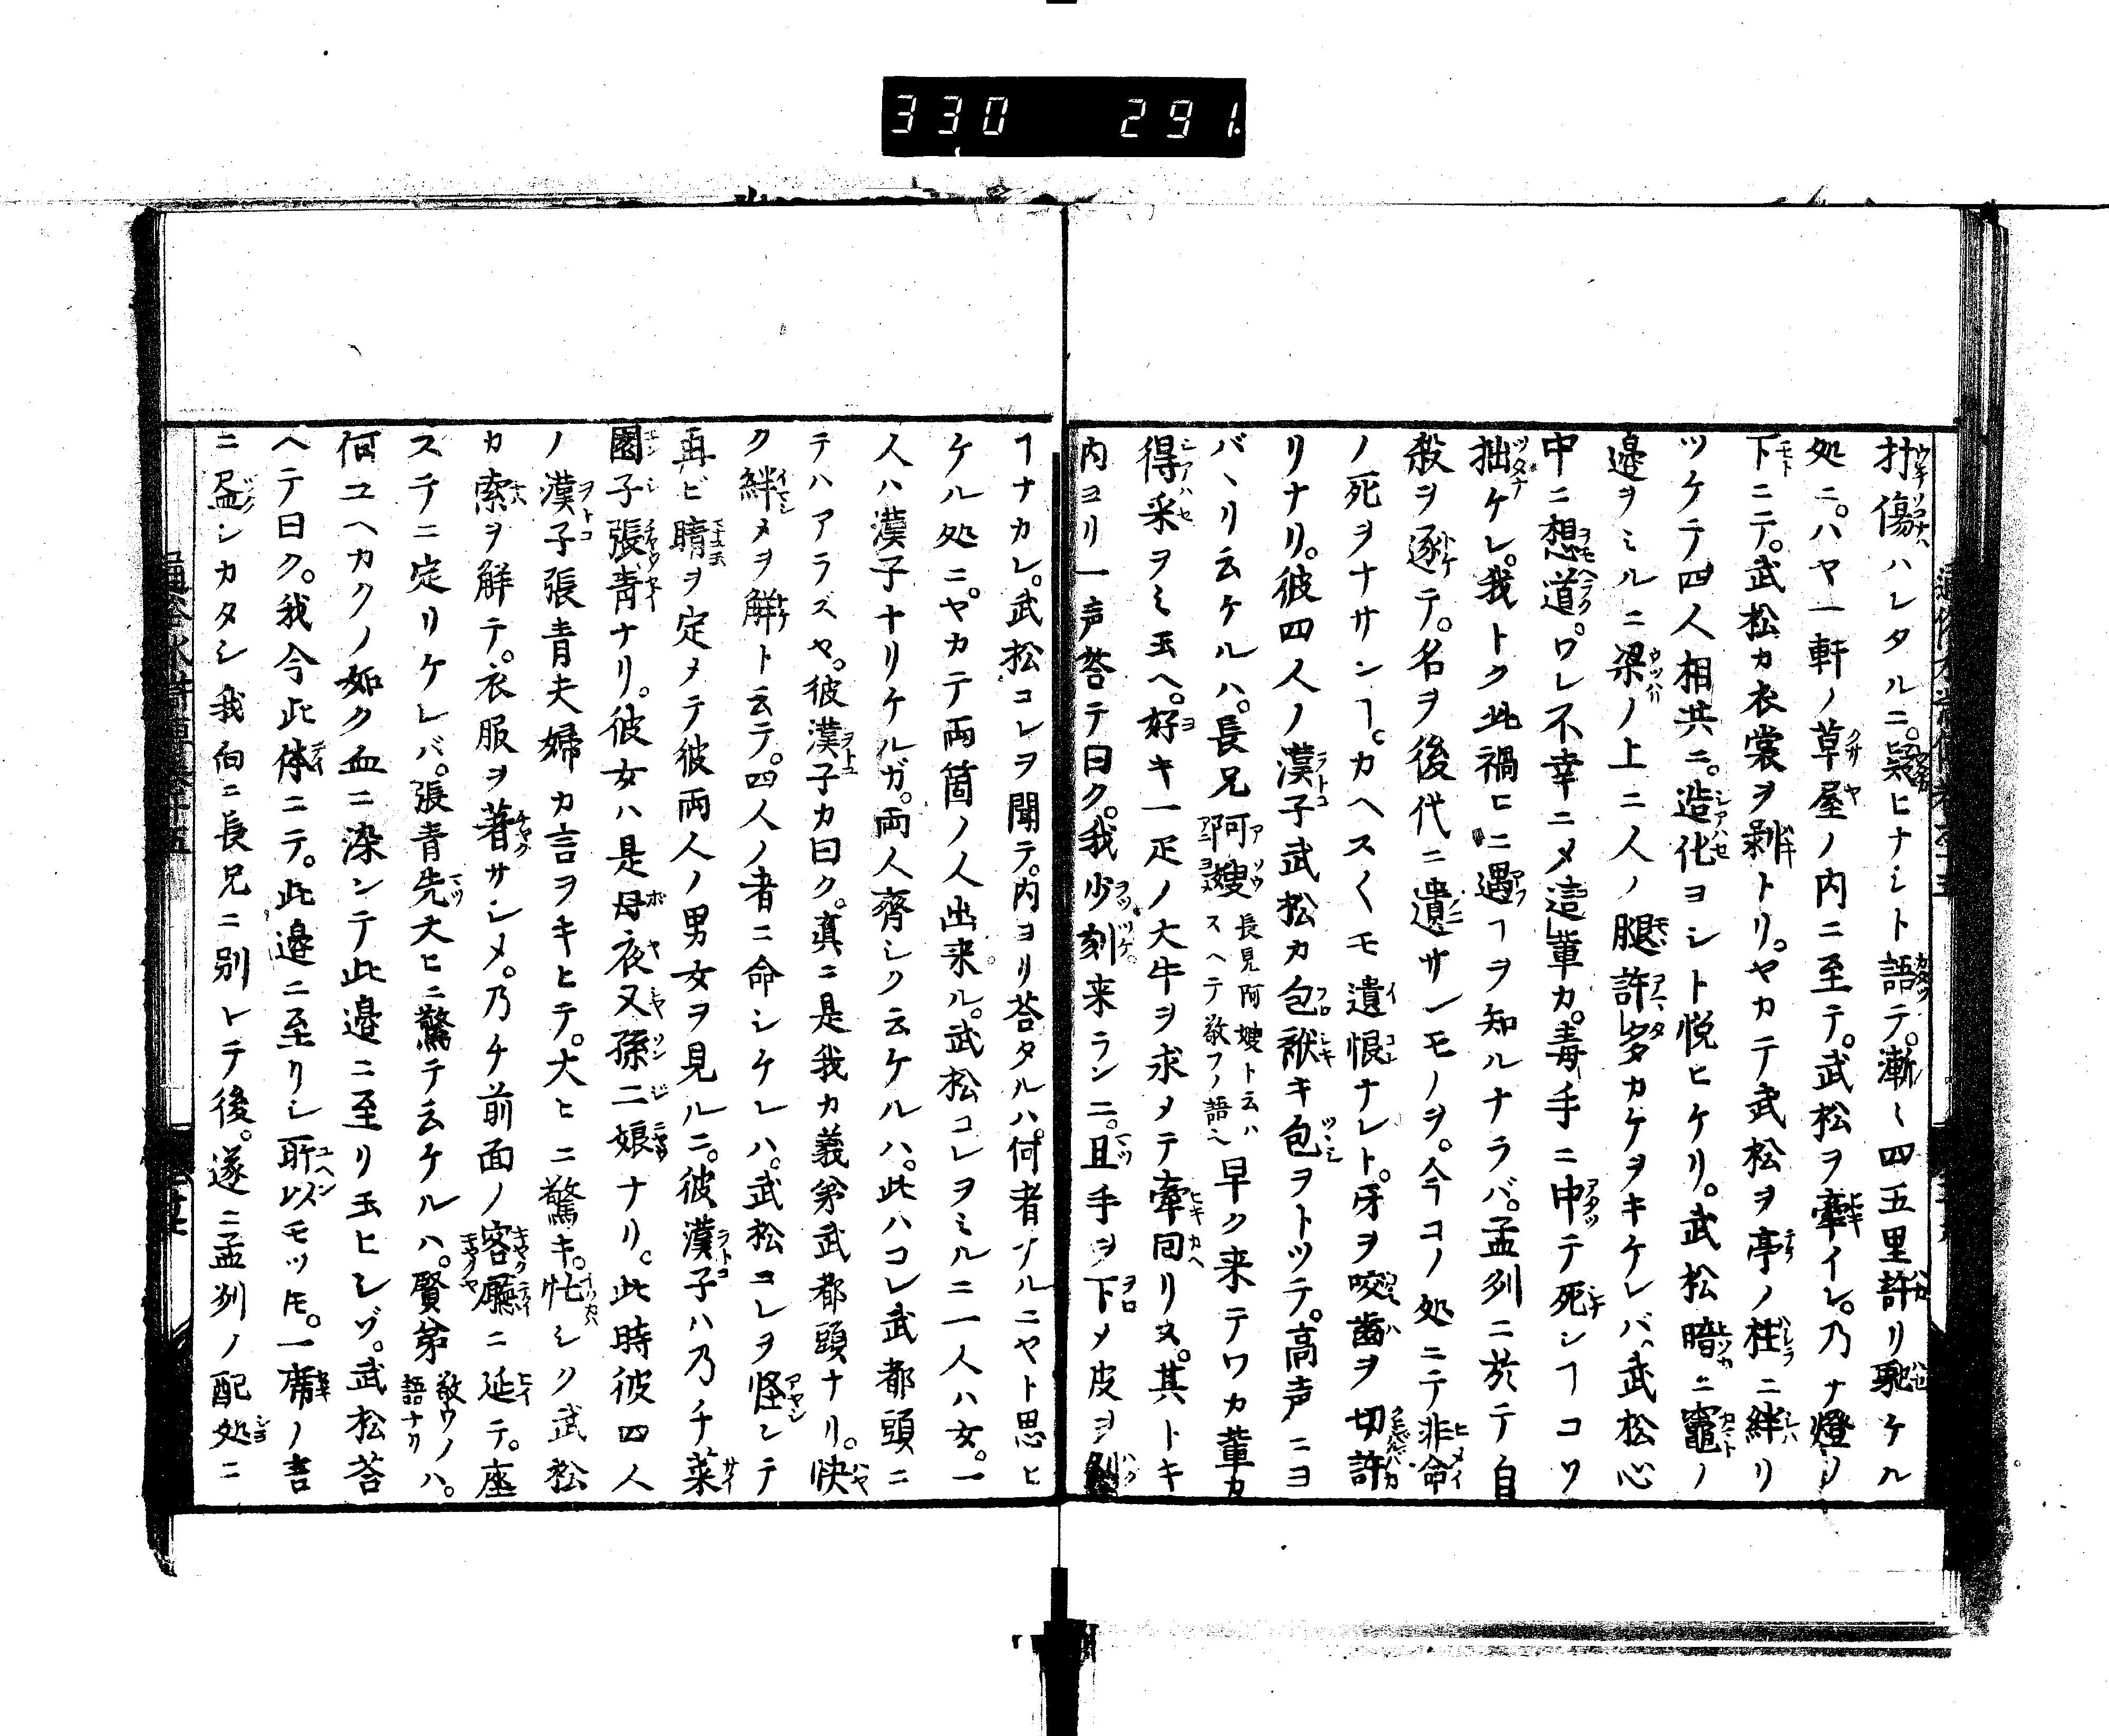 330 291
打傷ハレタルニ。疑ヒナシト語テ。漸〻四五里許リ馳ケル
処ニ。ハヤ一軒ノ草屋ノ内ニ至テ。武松ヲ牽イレ。乃ナ燈ノ
下ニテ。武松カ衣裳ヲ剥トリ。ヤカテ武松ヲ亭ノ柱ニ絆リ
ツケテ四人相共ニ。造化ヨシト悦ヒケリ。武松暗ニ竈ノ
邉ヲミルニ梁ノ上ニ人ノ腿許多カケヲキケレバ。武松心
中ニ想道。ワレ不幸ニメ這輩カ。毒手ニ中テ死シヿコソ
拙ケレ。我トク此禍ヒニ遇ヿヲ知ルナラバ。孟刕ニ於テ自
殺ヲ逐テ。名ヲ後代ニ遺サンモノヲ。今コノ処ニテ非命
ノ死ヲナサンヿ。カヘス〱モ遺恨ナレト。牙ヲ咬歯ヲ切許
リナリ。彼四人ノ漢子武松カ包袱キ包ヲトツテ。高声ニヨ
バヽリ云ケルハ。長兄阿嫂長兄阿嫂ト云ハスヘテ敬フノ語ヘ早ク来テワカ輩カ
得采ヲミ玉ヘ。好キ一疋ノ大牛ヲ求メテ牽回リヌ。其トキ
内ヨリ一声荅テ曰ク。我少刻来ランニ。且手ヲ下メ皮ヲ剝
ヿナカレ。武松コレヲ聞テ。内ヨリ荅タルハ。何者ナルニヤト思ヒ
ケル処ニ。ヤカテ両箇ノ人出来ル。武松コレヲミルニ一人ハ女。一
人ハ漢子ナリケルガ。両人齊シク云ケルハ。此ハコレ武都頭ニ
テハアラスヤ。彼漢子カ曰ク。真ニ是我カ義弟武都頭ナリ。快
ク絆メヲ解ト云テ。四人ノ者ニ命シケレハ。武松コレヲ怪シテ
再ビ睛ヲ定メテ彼両人ノ男女ヲ見ルニ。彼漢子ハ乃チ菜
園子張青ナリ。彼女ハ是母夜叉孫二娘ナリ。此時彼四人
ノ漢子張青夫婦カ言ヲキヒテ。大ヒニ驚キ。忙シク武松
カ索ヲ解テ。衣服ヲ著サシメ。乃チ前面ノ客廳ニ延テ。座
スチニ定リケレバ。張青先大ヒニ驚テ云ケルハ。賢弟敬ウノハ。語ナリ
何ユヘカクノ如ク血ニ染ンテ此邉ニ至リ玉ヒシゾ。武松荅
ヘテ曰ク。我今此体ニテ。此邉ニ至リシ所以モツ𪜈。一席ノ言
ニ盡シカタシ我向ニ長兄ニ別レテ後。遂ニ孟刕ノ配処ニ